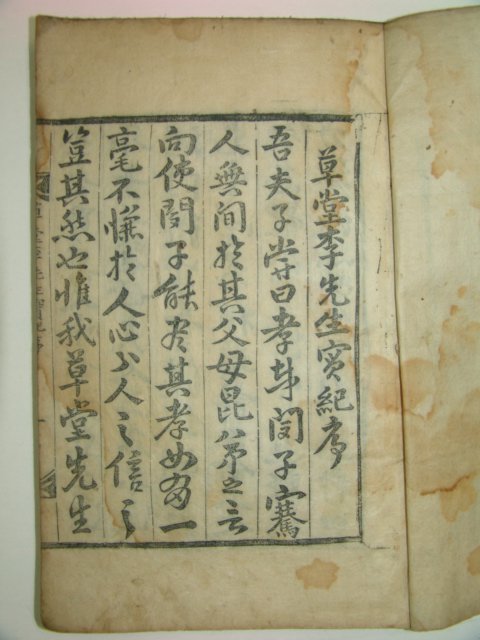 草堂李先生實紀序
吾夫子嘗曰孝哉閔子騫
人無間於其父母昆弟之言
向使閔子能尽其孝如一
毫不慊於人心人之信之
豈其然也惟我草堂先生
草堂李先生實紀序